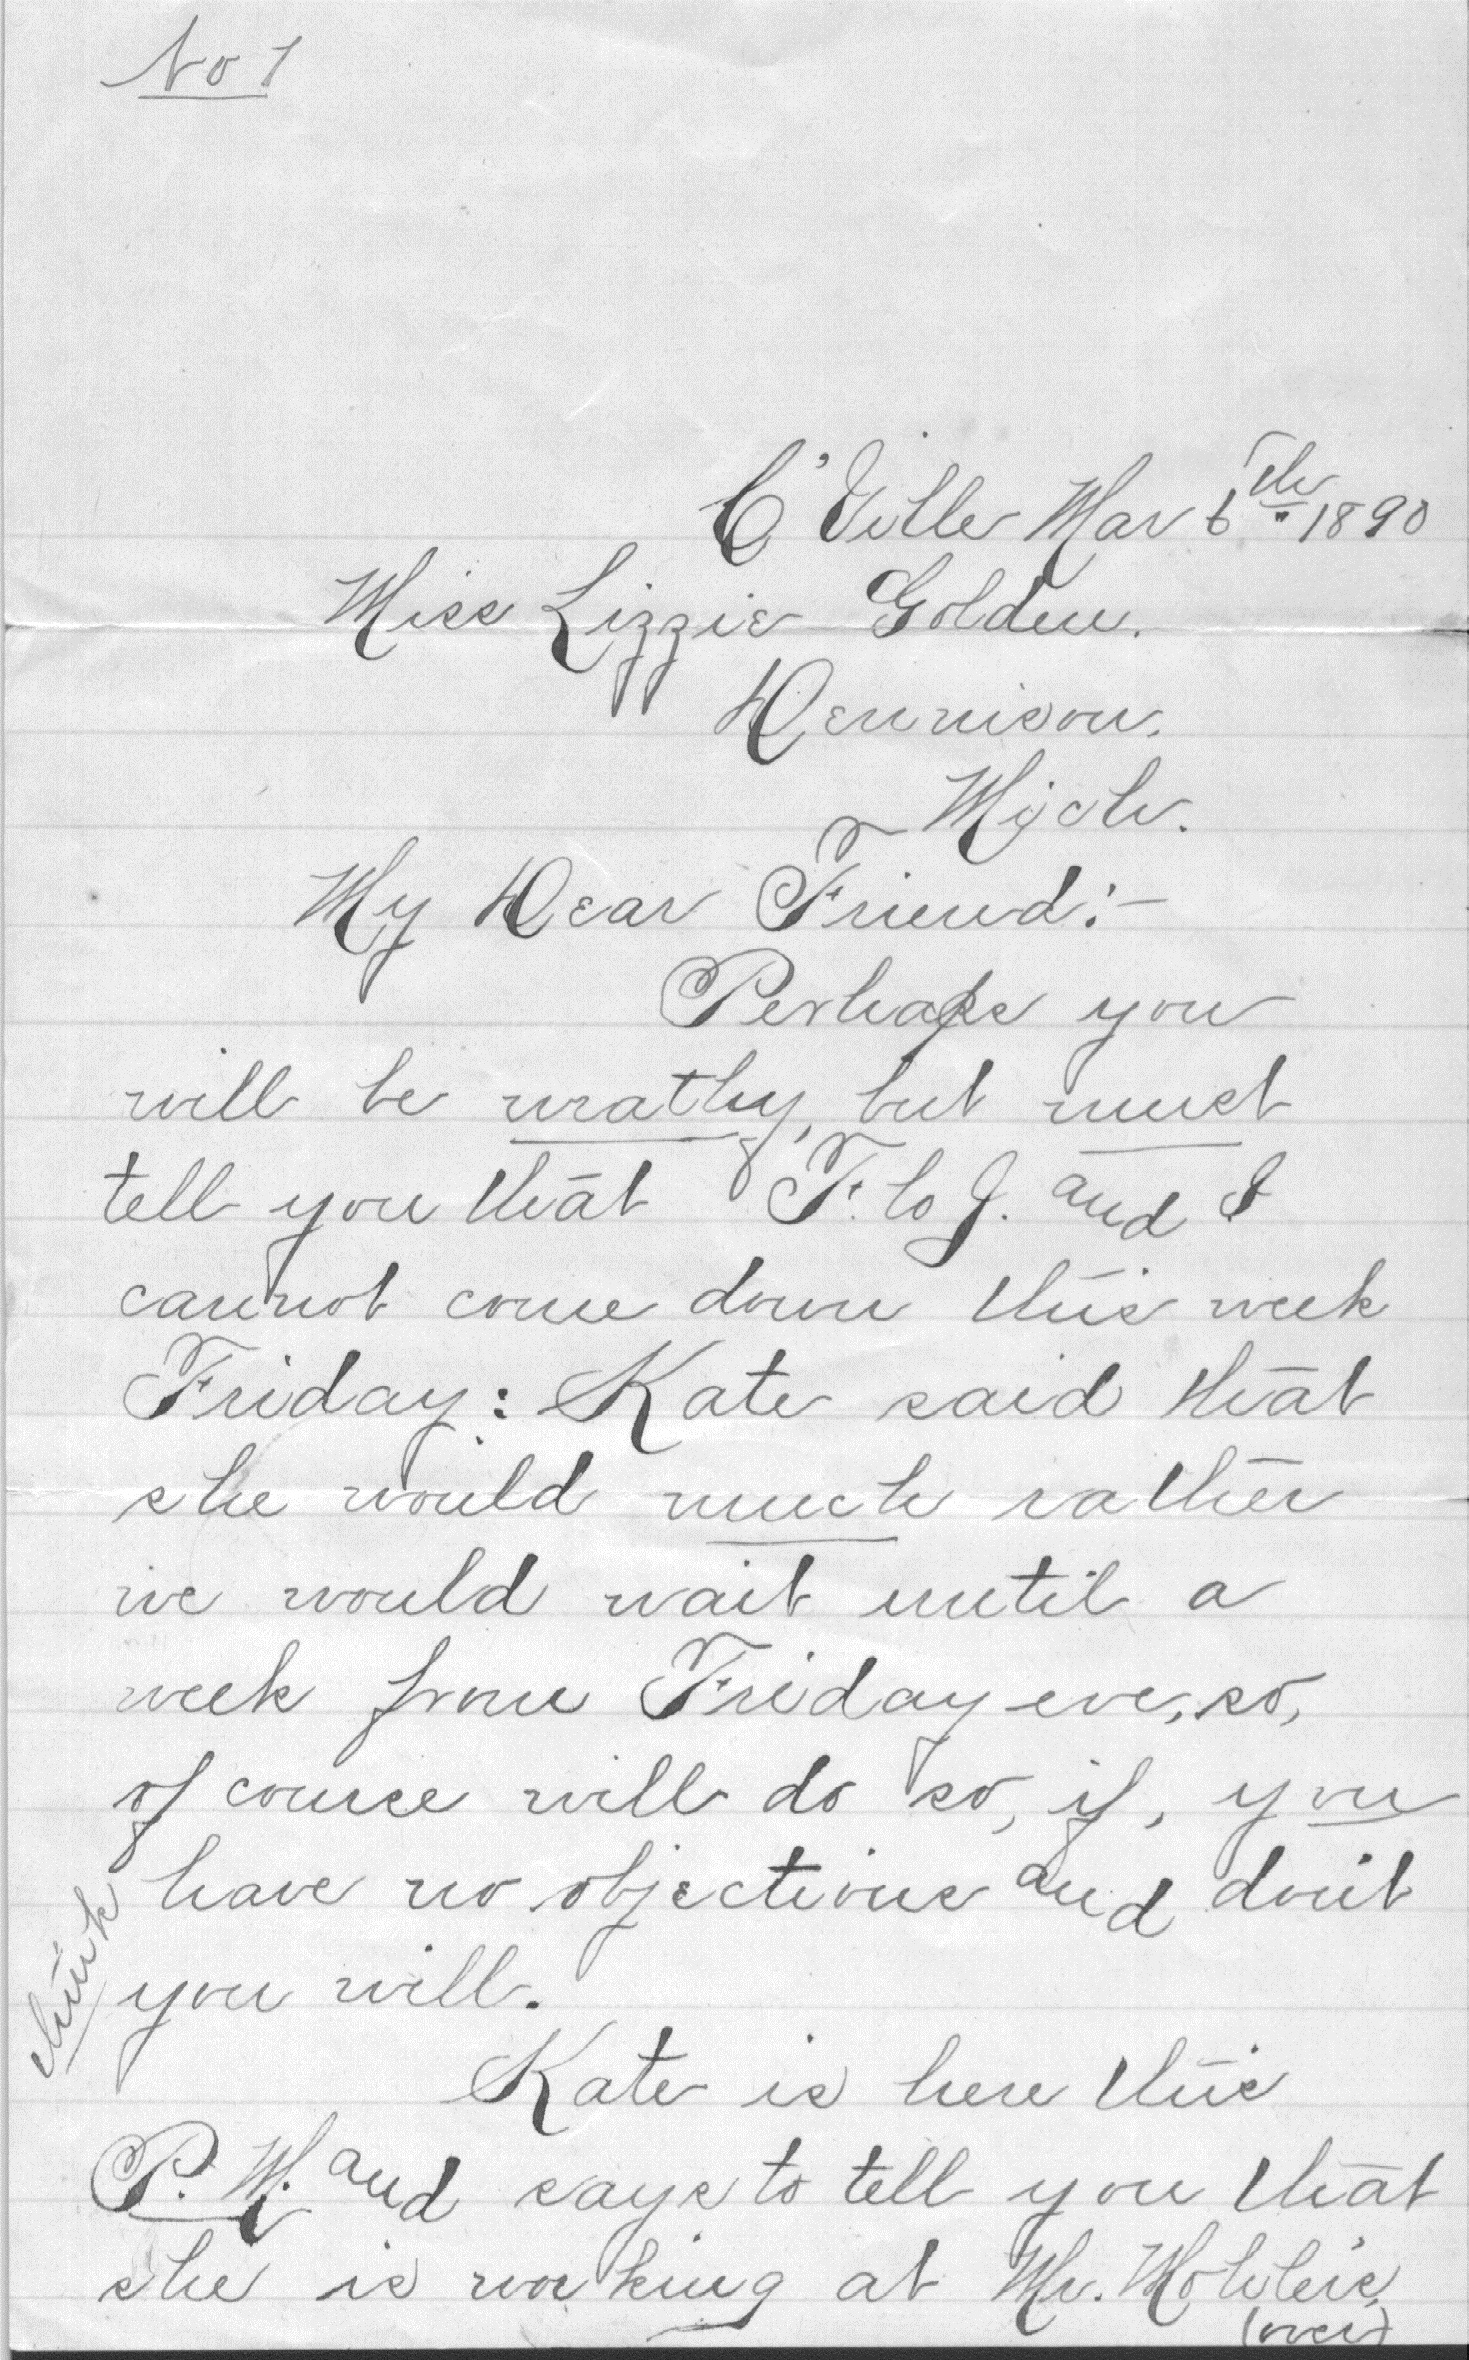 No 1
C'Ville Mar 6th 1890
Miss Lizzie Golden.
Dennison.
Mich.
My Dear Friend:-
Perhaps you
will be wrathy, but must
tell you that F. and I
cannot come down this week
Friday: Kate said that
she would much rather
we would wait until a
week from Friday eve, so,
of course will do so, if, you
have no objections and don't
think
you will.
Kate is here this
P.M. and says to tell you that
she is working at Mr.
(over)